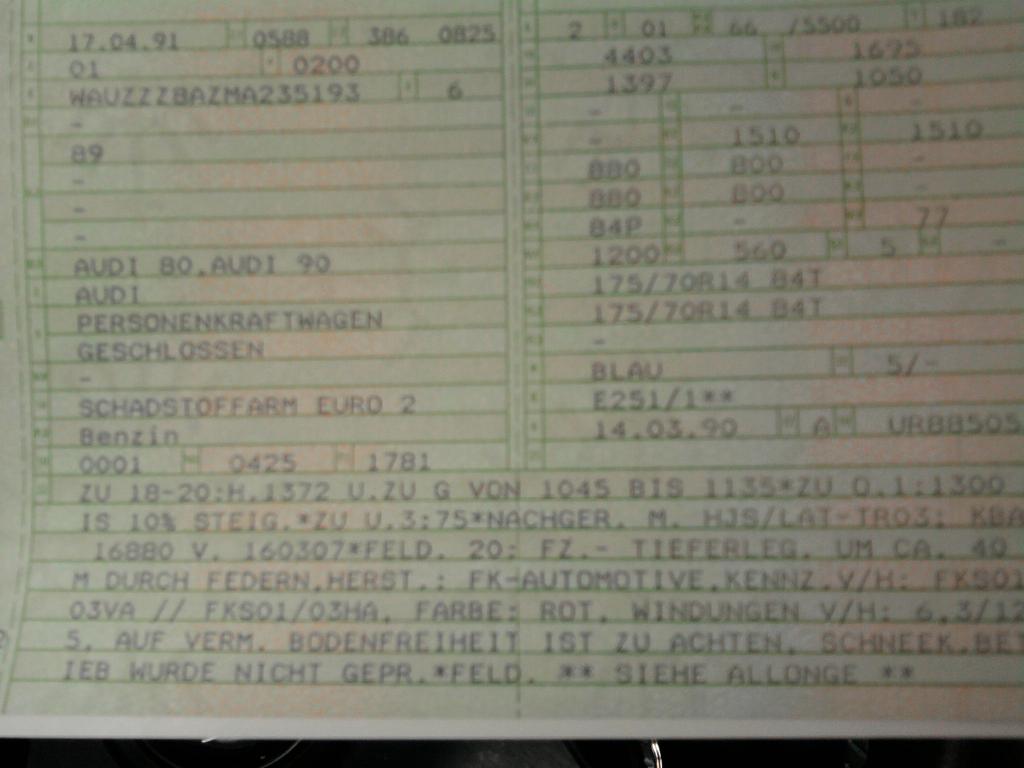 17.04.91 0588 386 0825
01 0200
WAUZZZ8AZMA235193 6
-
89
-
-
-
AUDI 80,AUDI 90
AUDI
PERSONENKRAFTWAGEN
GESCHLOSSEN
-
SCHADSTOFFARM EURO 2
Benzin
0001 0425 1781
2 01 66 /5500 182
4403 1695
1397 1050
- - -
- 1510 1510
880 800 -
880 800 -
84P - 77
1200 560 5 -
175/70R14 84T
175/70R14 84T
-
BLAU 5/-
E251/1**
14.03.90 A UR88505
ZU 18-20:H.1372 U.ZU G VON 1045 BIS 1135*ZU O.1:1300
IS 10% STEIG.*ZU U.3:75*NACHGER. M. HJS/LAT-TR03; KBA
16880 V. 160307*FELD. 20: FZ.- TIEFERLEG. UM CA. 40
M DURCH FEDERN,HERST.: FK-AUTOMOTIVE,KENNZ.V/H: FKS01
03VA // FKS01/03HA, FARBE: ROT, WINDUNGEN V/H: 6,3/12
5, AUF VERM. BODENFREIHEIT IST ZU ACHTEN, SCHNEEK.BET
IEB WURDE NICHT GEPR.*FELD. ** SIEHE ALLONGE **